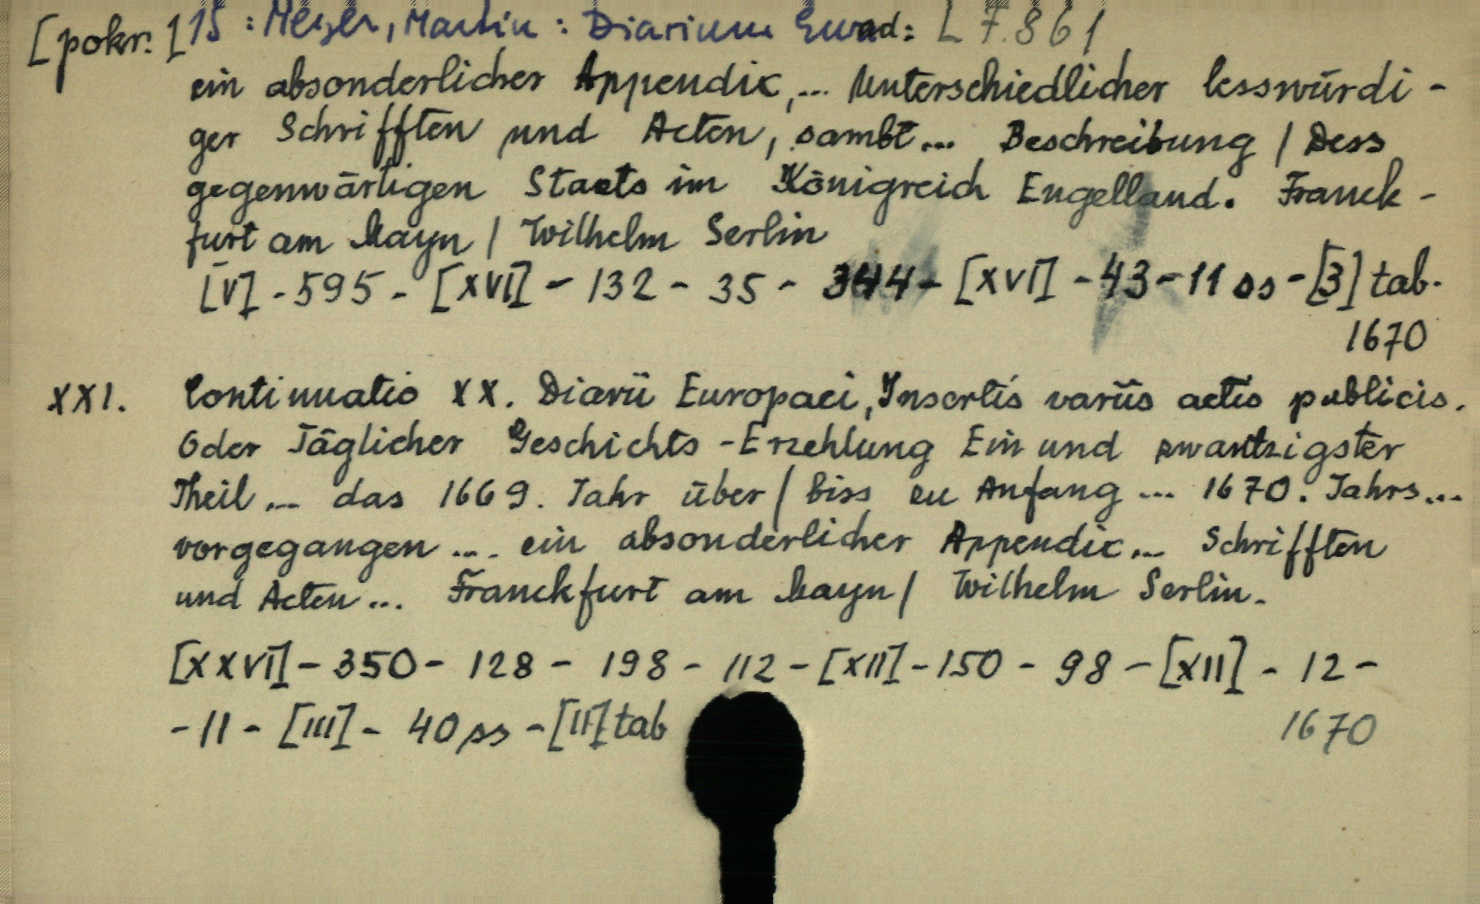 [pokr.] 15 : Meyer, Martin : Diarium Euro ad: L 7.861
ein absonderlicher Appendix,... Unterschiedlicher lesswürdi-
ger Schrifften und Acten, sambt... Beschreibung / Dess
gegenwärtigen Staets im Königreich Engelland. Franck-
furt am Mayn / Wilhelm Serlin
[V] - 595 - [XVI] - 132 - 35 - 344 - [XVI] - 43 - 11 ss - [3] tab.
1670
XXI. Continuatio XX. Diarii Europaei, Insertis variis actis publicis.
Oder Täglicher Geschichts-Erzehlung Ein und zwantzigster
Theil... das 1669. Jahr über / biss zu Anfang... 1670. Jahrs...
vorgegangen.... ein absonderlicher Appendix... Schrifften
und Acten... Franckfurt am Mayn / Wilhelm Serlin.
[XXVI] - 350 - 128 - 198 - 112 - [XII] - 150 - 98 - [XII] - 12 -
- 11 - [III] - 40 ss - [II] tab 1670